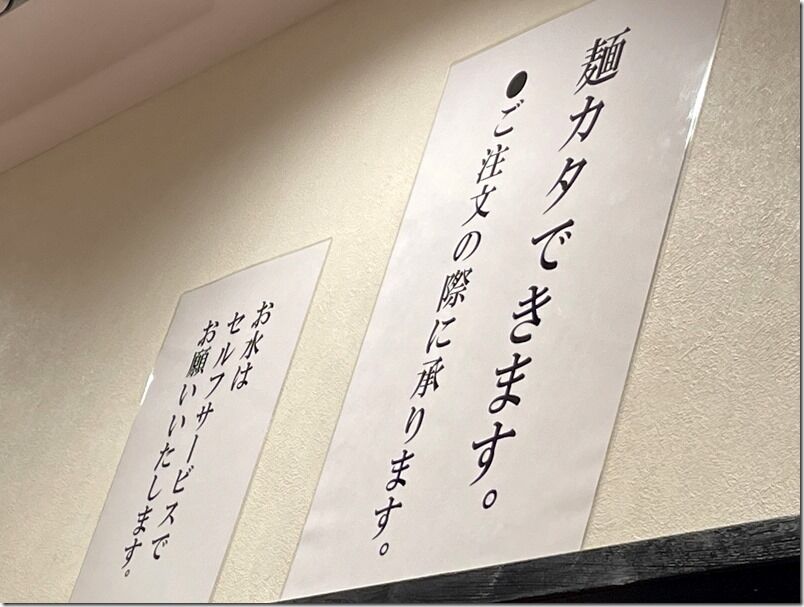 麺カタできます。
●ご注文の際に承ります。
お水は
セルフサービスで
お願いいたします。